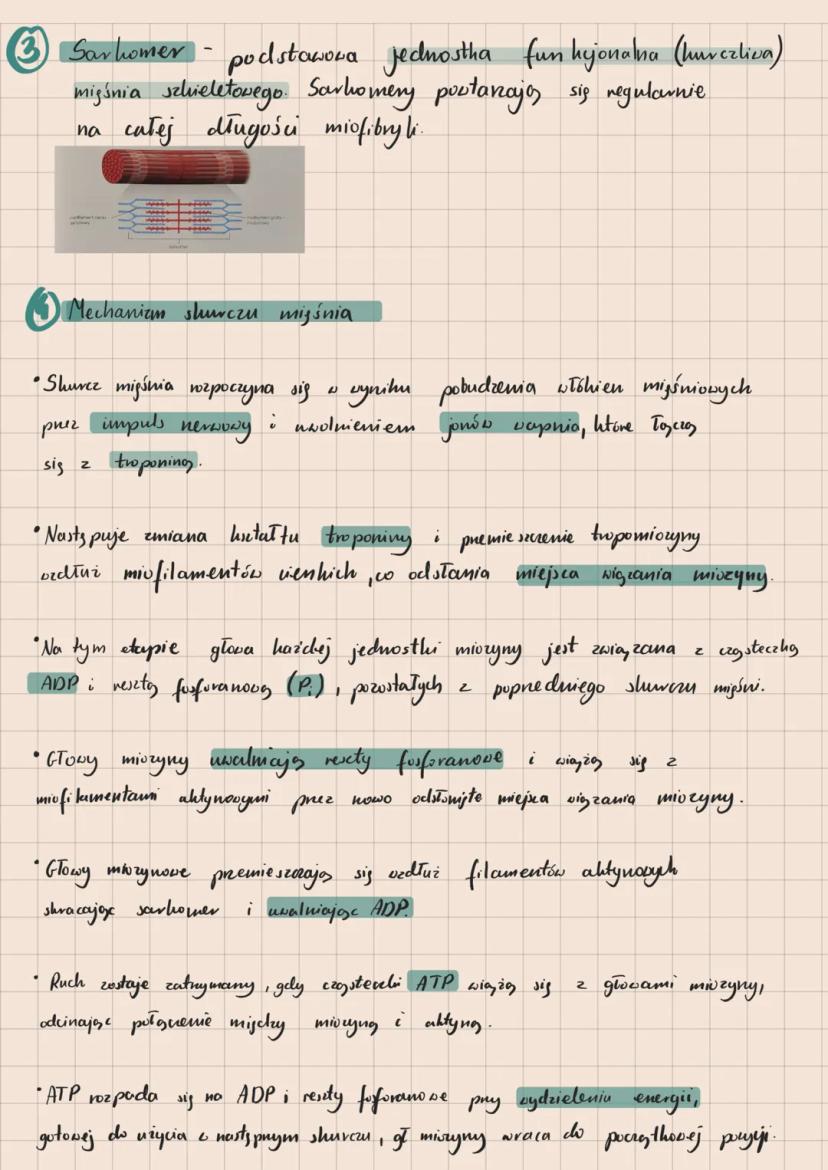 ③ Sarkomer - podstawowa jednostka funkcjonalna (kurczliwa)
mięśnia szkieletowego. Sarkomery powtarzają się regularnie
na całej długości miofibryli.
sarkomer
④ Mechanizm skurczu mięśnia
• Skurcz mięśnia rozpoczyna się w wyniku pobudzenia włókien mięśniowych
przez impuls nerwowy i uwolnieniem jonów wapnia, które łączą
się z troponiną.
• Następuje zmiana kształtu troponiny i przemieszczenie tropomiozyny
wzdłuż miofilamentów cienkich, co odsłania miejsca wiązania miozyny.
• Na tym etapie głowa każdej jednostki miozyny jest związana z cząsteczką
ADP i resztą fosforanową (Pi), pozostałych z poprzedniego skurczu mięśni.
• Głowy miozyny uwalniają reszty fosforanowe i wiążą się z
miofilamentami aktynowymi przez nowo odsłonięte miejsca wiązania miozyny.
• Głowy miozynowe przemieszczają się wzdłuż filamentów aktynowych
skracając sarkomer i uwalniając ADP.
• Ruch zostaje zatrzymany, gdy cząsteczki ATP wiążą się z głowami miozyny,
odcinając połączenie między miozyną i aktyną.
• ATP rozpada się na ADP i reszty fosforanowe przy wydzieleniu energii,
gotowej do użycia w następnym skurczu, gł miozyny wraca do początkowej pozycji.